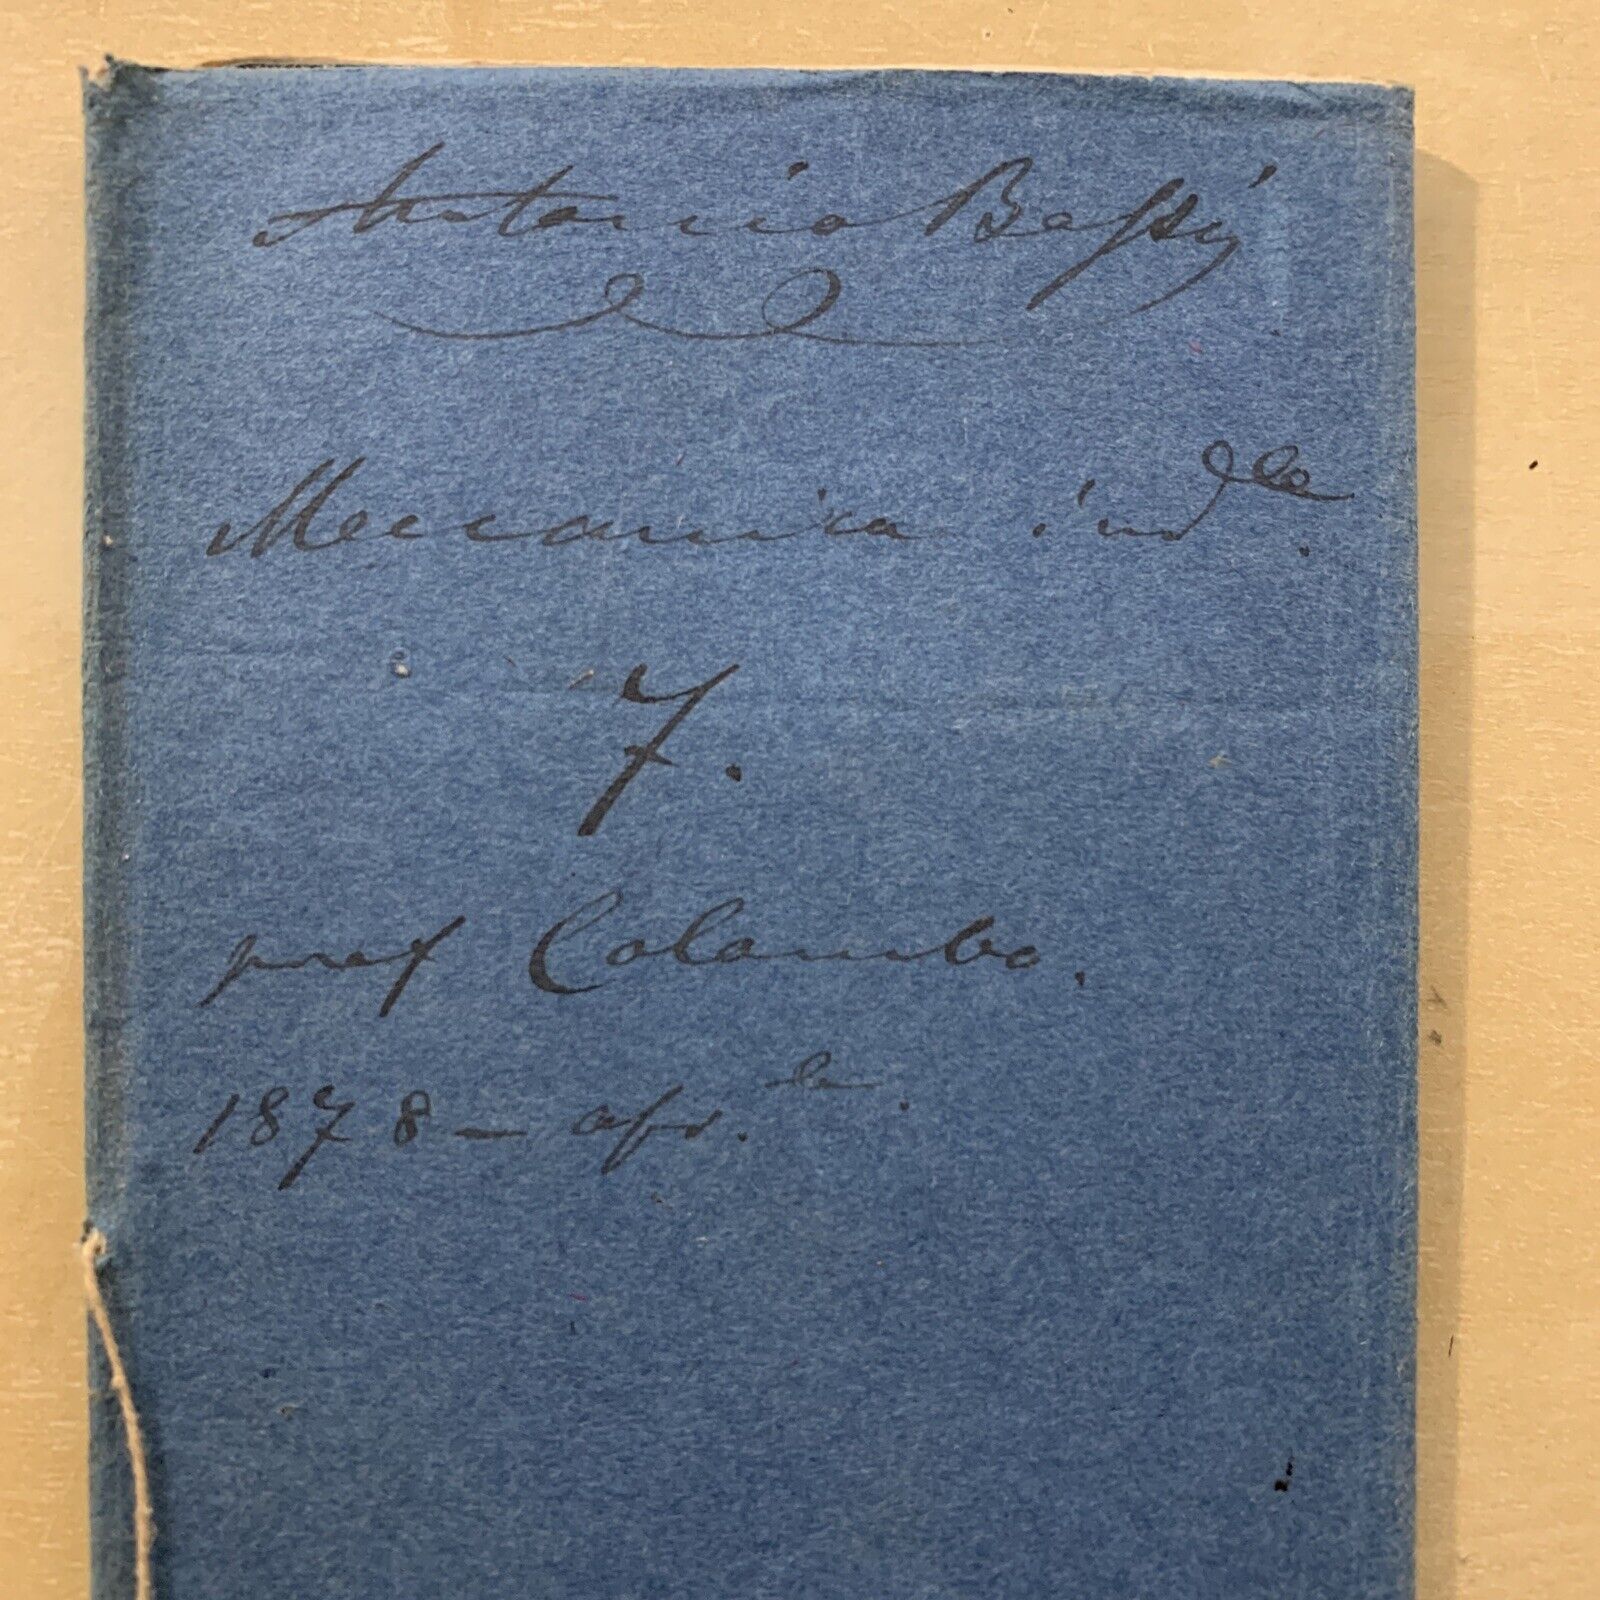 Antonio Bessi
Meccanica ind.le
7.
prof Colombo.
1878 - apr.le.